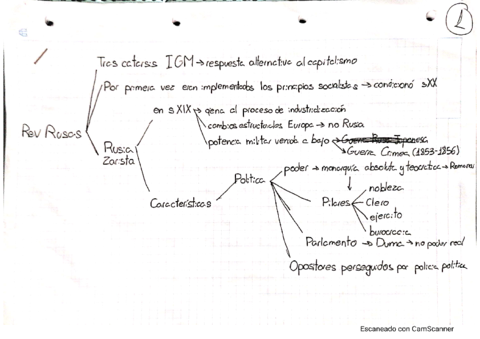 1
Tras catarsis IGM → respuesta alternativa al capitalismo
Por primera vez eran implementados los principios socialistas → condicionó sXX
en sXIX → ajena al proceso de industrialización
cambios estructurales Europa → no Rusia
Rev Rusas
potencia militar venida a bajo → Guerra Ruso Japonesa
Rusia
Zarista
Guerra Crimea (1853-1856)
poder → monarquía absoluta y teocrática → Romanov
Política
nobleza
Características
Pilares
Clero
ejército
burocracia
Parlamento → Duma → no poder real
Opositores perseguidos por policía política
Escaneado con CamScanner